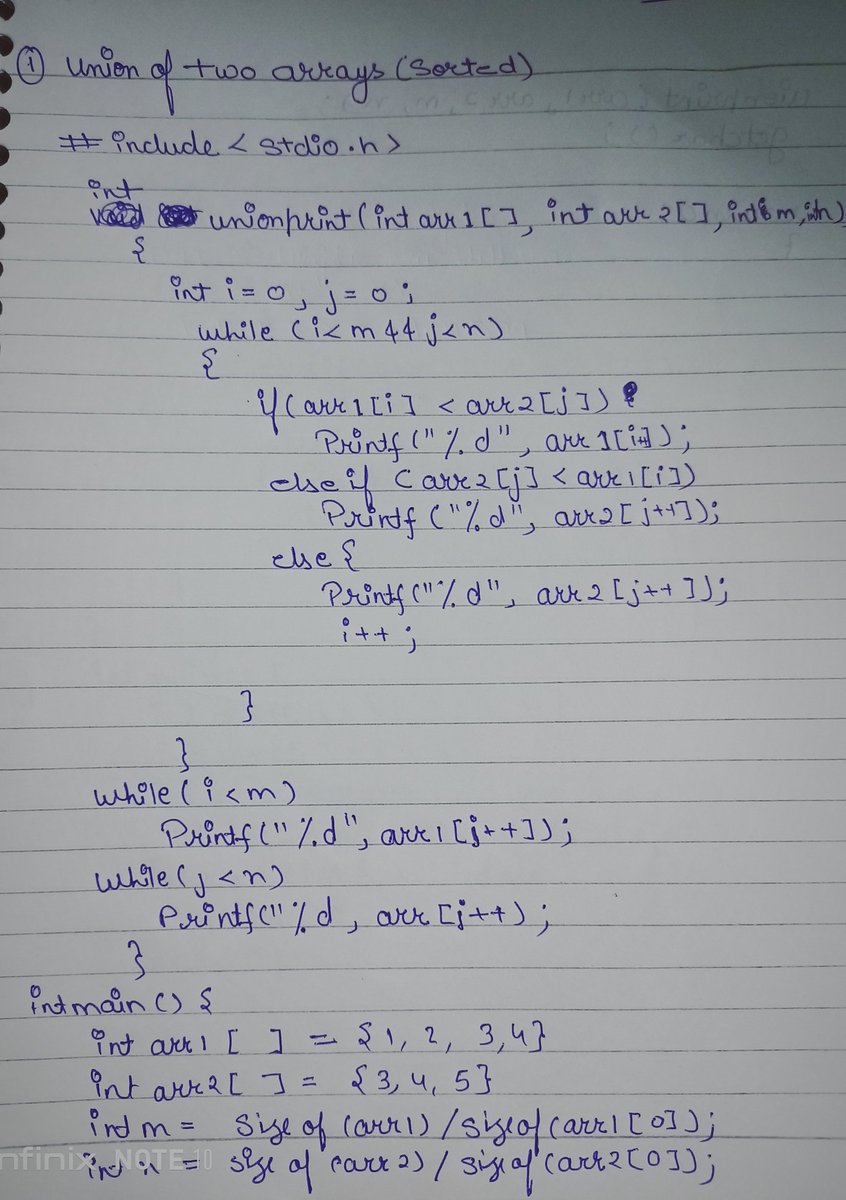 ① Union of two arrays (Sorted)
# include < stdio.h >
int
unionprint (int arr1 [ ], int arr 2[ ], int m, int n)
{
int i = 0 , j = 0 ;
while (i < m && j < n)
{
if (arr1[i] < arr2[j])
Printf ("%d", arr1[i++]);
else if (arr2[j] < arr1[i])
Printf ("%d", arr2[j++]);
else {
Printf ("%d", arr2[j++]);
i++ ;
}
}
while (i < m)
Printf ("%d", arr1[j++]);
while (j < n)
Printf ("%d , arr [j++) ;
}
int main () {
int arr1 [ ] = {1, 2, 3, 4}
int arr2 [ ] = {3, 4, 5}
int m = Size of (arr1) / sizeof (arr1[0]);
int n = size of (arr2) / sizeof (arr2[0]);
Infinix NOTE 10